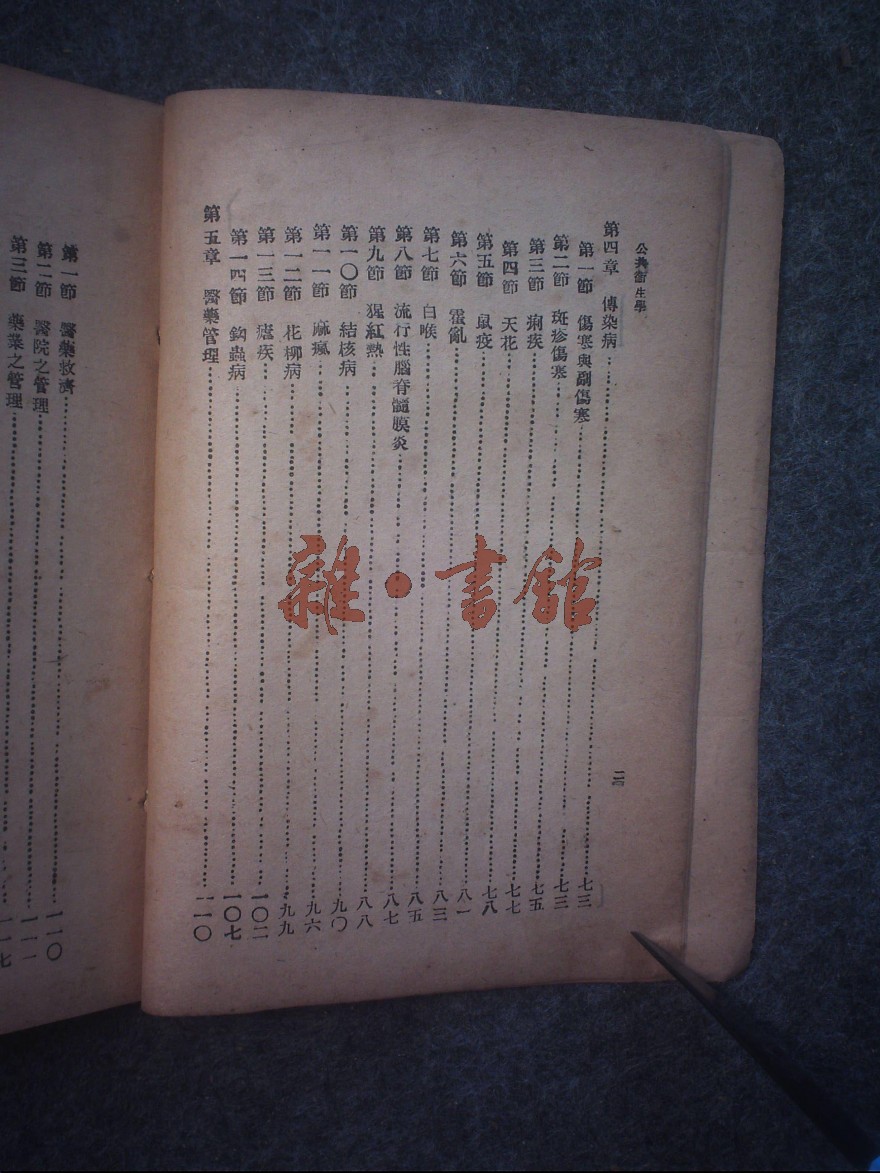 公共衛生學
二
第四章 傳染病……七三
第一節 傷寒與副傷寒……七三
第二節 斑疹傷寒……七五
第三節 痢疾……七七
第四節 天花……七八
第五節 鼠疫……八一
第六節 霍亂……八三
第七節 白喉……八五
第八節 流行性腦脊髓膜炎……八七
第九節 猩紅熱……八八
第一〇節 結核病……九〇
第一一節 麻瘋……九六
第一二節 花柳病……九九
第一三節 瘧疾……一〇二
第一四節 鈎蟲病……一〇七
第五章 醫藥管理……一一〇
第一節 醫藥救濟……一一〇
第二節 醫院之管理……一一一
第三節 藥業之管理……一一七
雜·書館